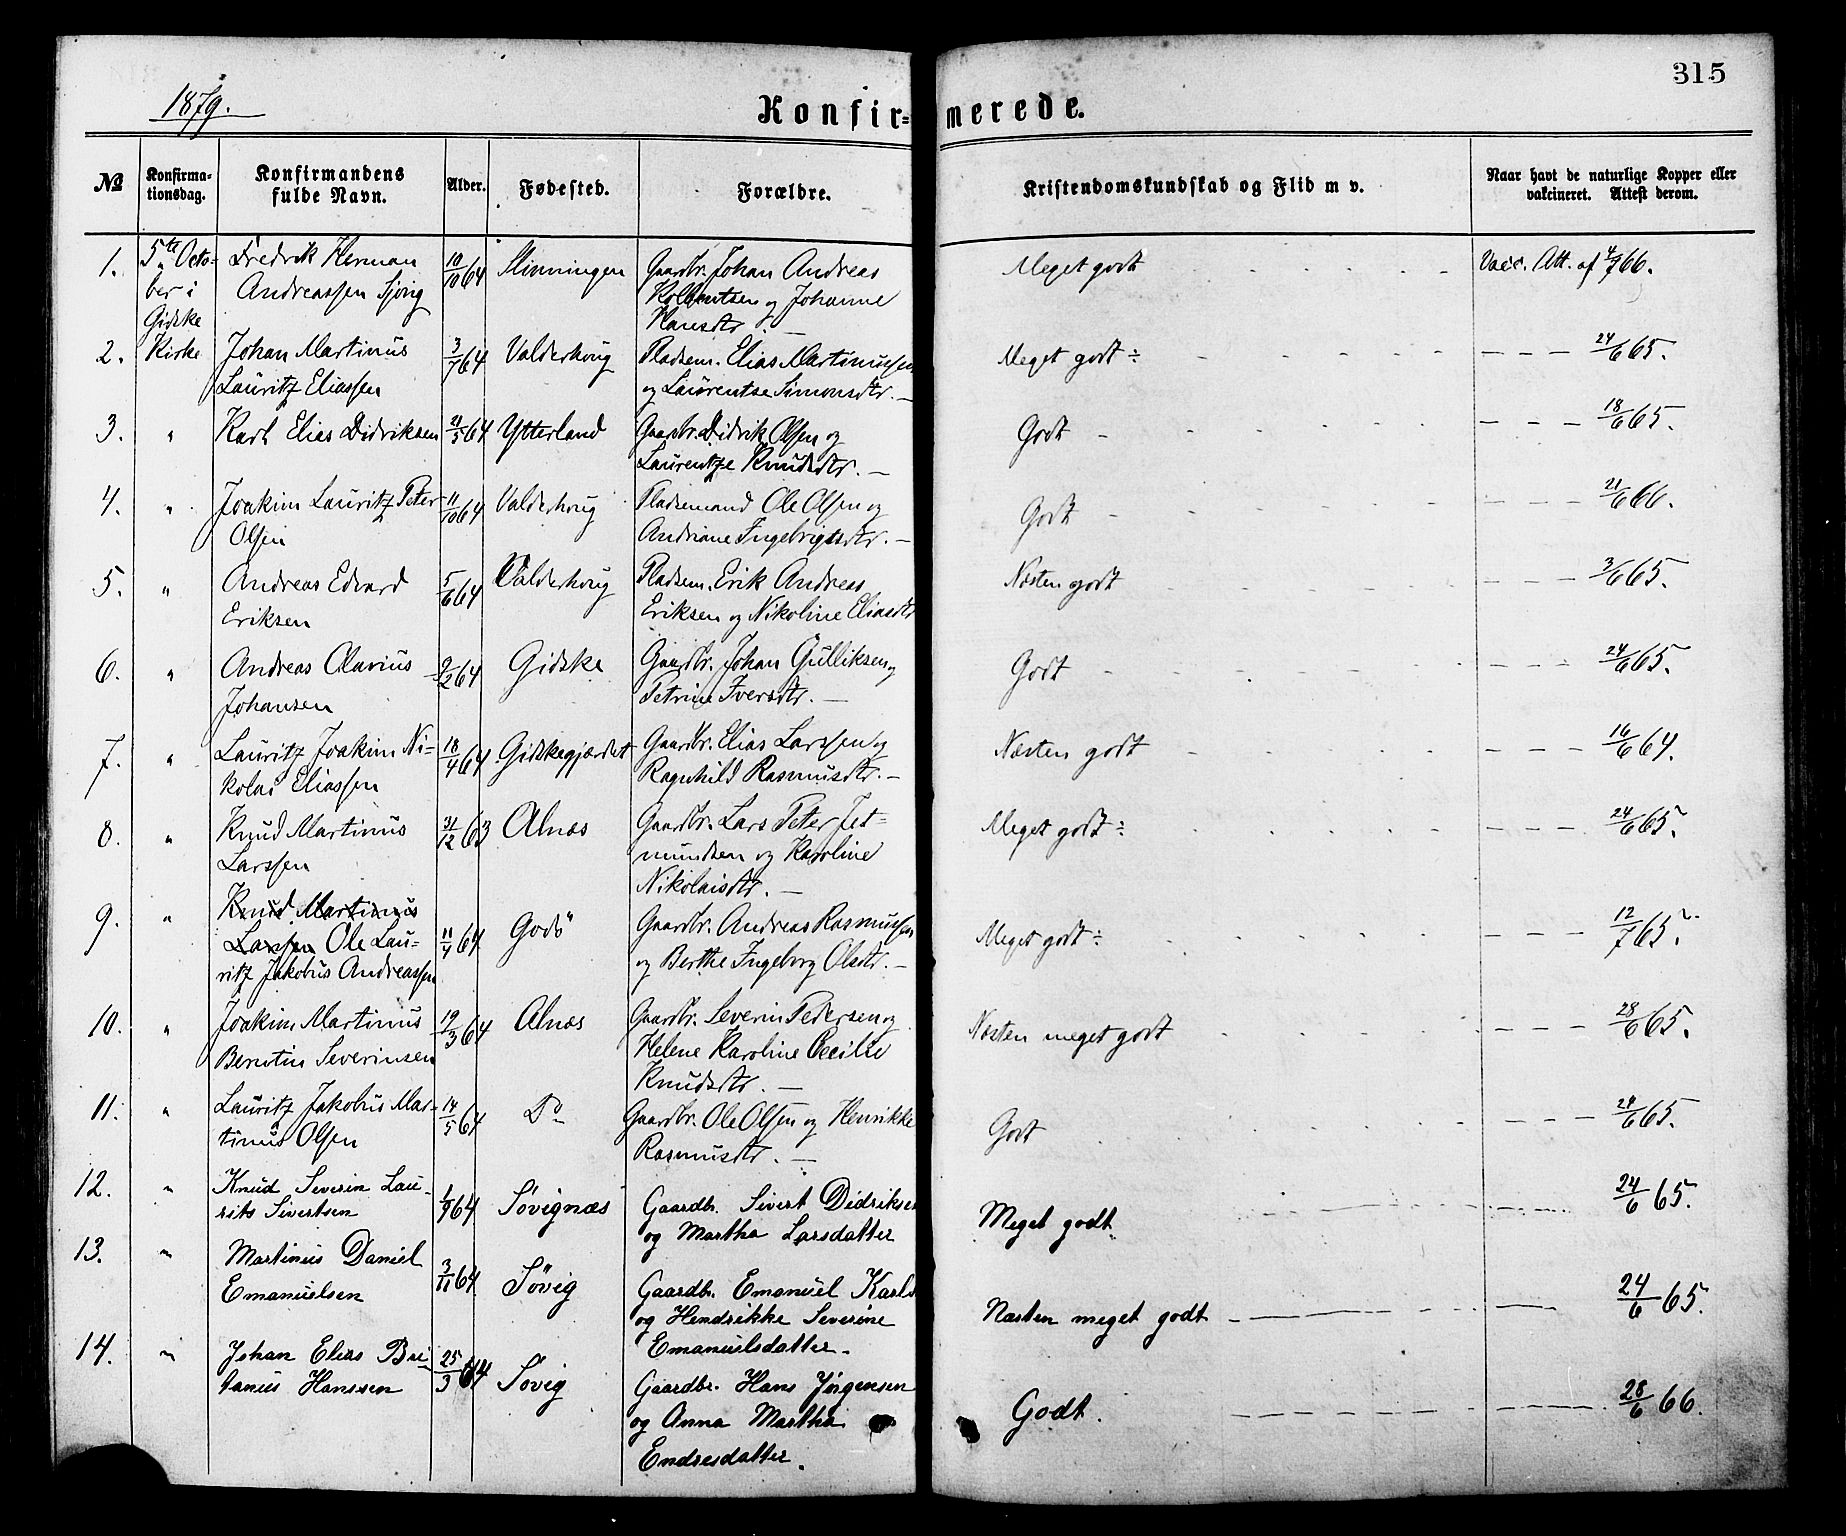 315
1879.
Konfir=merede.
№ Konfirma-tionsdag. Konfirmandens fulde Navn. Alder. Fødested. Forældre. Kristendomskundskab og Flid m v. Naar havt de naturlige Kopper eller vakcineret. Attest derom.
1. 5te Octo- Fredrik Herman 10/10 64 Slinningen Gaardbr. Johan Andreas Meget godt Vacc. Att. af 4/7 66.
ber i Andreassen Sjong og Johanne
Gidske Hansdtr. —
2. Kirke Johan Martinus 3/7 64 Valderhoug Pladsem. Elias Martinussen Meget godt ÷ — — — 24/6 65.
Lauritz Eliassen og Laurentse Simonsdtr. —
3. " Karl Elias Didriksen 21/5 64 Ytterland Gaardbr. Didrik Olsen og Godt — — — 18/6 65.
Laurentze Knudsdtr. —
4. " Joakim Lauritz Peter 11/10 64 Valderhoug Pladsemand Ole Olsen og Godt — — — 21/6 66.
Olsen Andriane Ingebrigtsdtr. —
5. " Andreas Edvard 5/6 64 Valderhoug Pladsem. Erik Andreas Næsten godt — — — 3/6 65.
Eriksen Eriksen og Nikoline Eliasdtr
6. " Andreas Olavius 9/2 64 Gidske Gaardbr. Johan Gulliksen og Godt — — — 24/6 65.
Johansen Petrine Iversdtr. —
7. " Lauritz Joakim Ni= 18/4 64 Gidskegjærdet Gaardbr. Elias Larssen og Næsten godt — — — 16/6 64.
kolai Eliassen Ragnhild Rasmusdtr. —
8. " Knud Martinus 31/12 63 Alnæs Gaardbr. Lars Peter Jet= Meget godt ÷ — — — 24/6 65.
Larssen mundsen og Karoline
Nikolaisdtr. —
9. " Knud Martinus
Larssen Ole Lau= 11/4 64 Godö Gaardbr. Andreas Rasmussen Meget godt ÷ — — — 12/7 65.
ritz Jakobus Andreassen og Berthe Ingeborg Olsdtr. —
10. " Joakim Martinus 19/3 64 Alnæs Gaardbr. Severin Pedersen og Næsten meget godt — — — 28/6 65.
Berntin Severinsen Helene Karoline Cecilie
Knudsdtr. —
11. " Lauritz Jakobus Mar- 14/5 64 Do Gaardbr. Ole Olsen og Henrikke Godt — — — 24/6 65.
tinus Olsen Rasmusdtr. —
12. " Knud Severin Lau- 1/9 64 Søvignæs Gaardb. Sivert Didriksen Meget godt. 24/6 65.
rits Sivertsen og Martha Larsdatter
13. " Martinus Daniel 3/11 64 Søvig Gaardb. Emanuel Næsten meget godt — 24/6 65.
Emanuelsen og Hendrikke Severine
Emanuelsdatter.
14. " Johan Elias 25/3 64 Søvig Gaardbr. Hans Jørgensen Godt. 28/6 66.
Hanssen og Anna Martha
Endresdatter.